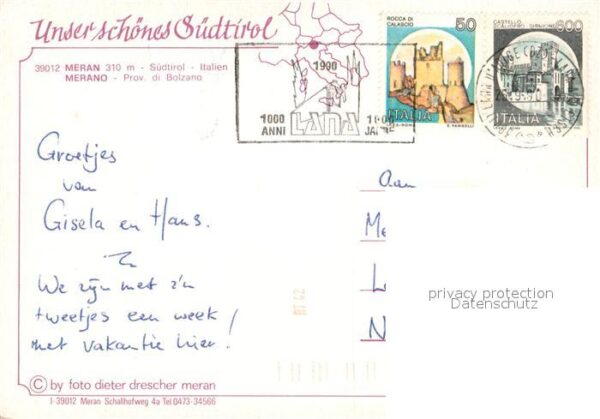 Unser schönes Südtirol
39012 MERAN 310 m - Südtirol - Italien
MERANO - Prov. di Bolzano
1990
1000 ANNI LANA 1000 JAHRE
ROCCA DI CALASCIO
50
ITALIA
CASTELLO SCALIGERO - SIRMIONE
600
ITALIA
Groetjes
van
Gisela en Hans.
We zijn met z'n
tweetjes een week
met vakantie hier!
Aan
privacy protection
Datenschutz
© by foto dieter drescher meran
I-39012 Meran Schallhofweg 4a Tel.0473-34566